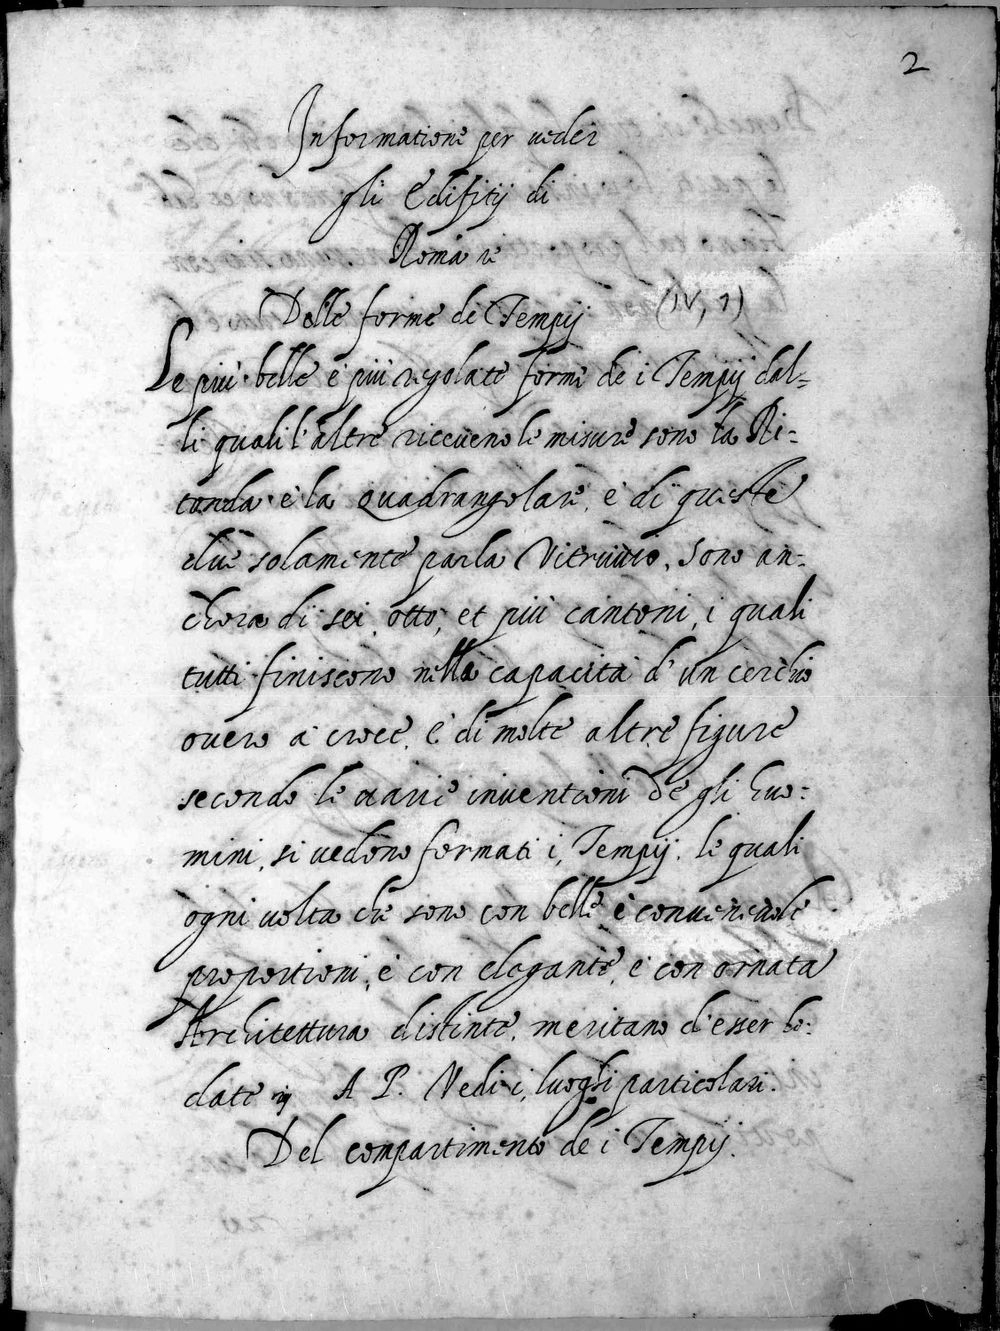 2
Informatione per veder
gli Edifitij di
Roma
Delle forme de Tempij (IV, 1)
Le più belle e più regolate forme de i Tempij dal=
le quali l'altre riceveno le misure sono la Ri=
tonda e la Quadrangolare, e di queste
due solamente parla Vitruvio. sono an=
chora di sei, otto, et più cantoni, i quali
tutti finiscono nella capacità d'un cerchio
overo a croce, e di molte altre figure
secondo le varie inventioni de gli huo=
mini, si vedono formati i, Tempij. le quali
ogni volta che sono con belle e convenevole
proportioni, e con elegante, e con ornata
Architettura distinte, meritano d'esser lo=
date A P. Vedi i, luoghi particolari.
Del compartimento de i Tempij.